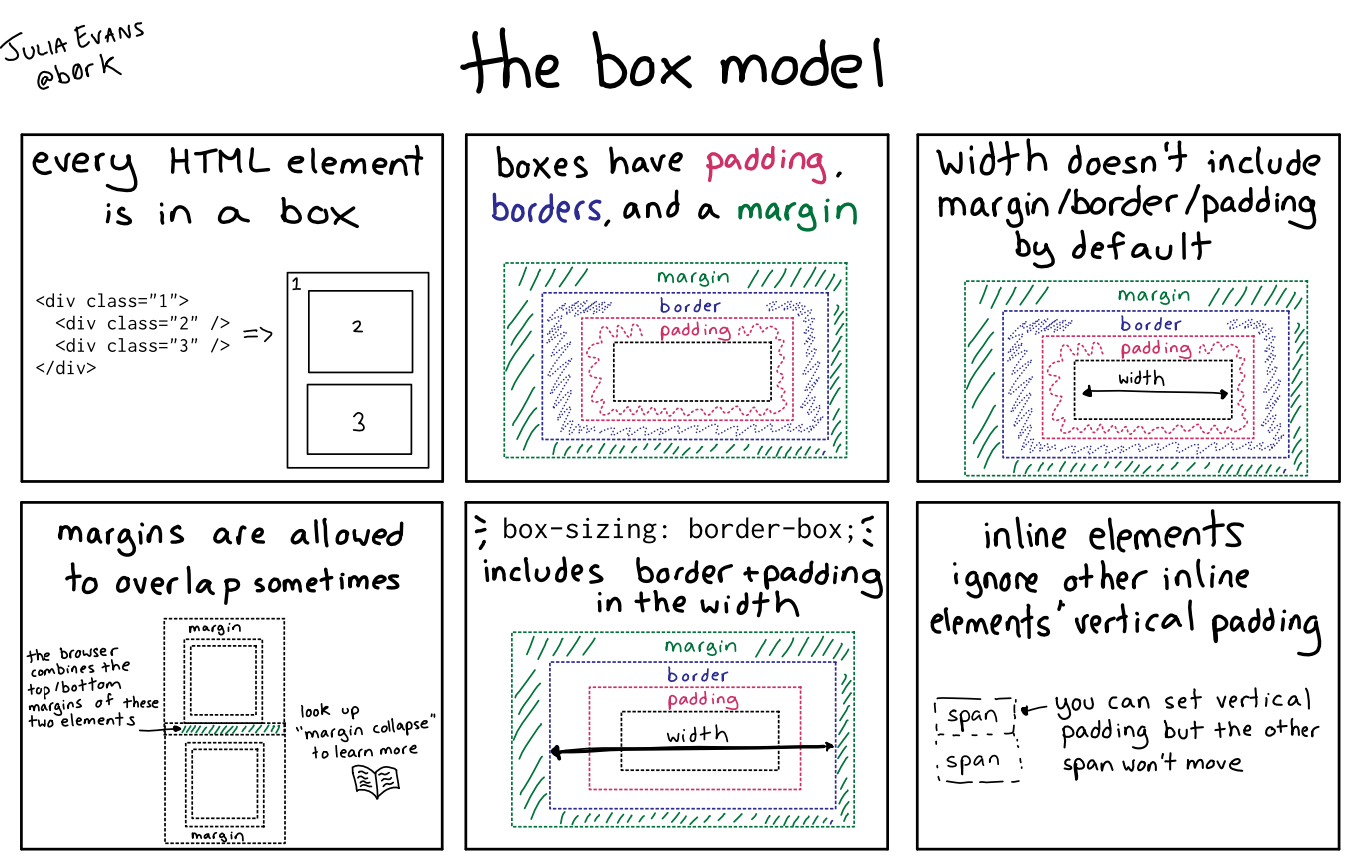 JULIA EVANS
@b0rk
the box model
every HTML element
is in a box
<div class="1">
<div class="2" />
<div class="3" />
</div>
=>
1
2
3
boxes have padding,
borders, and a margin
margin
border
padding
width doesn't include
margin/border/padding
by default
margin
border
padding
width
margins are allowed
to overlap sometimes
margin
the browser
combines the
top/bottom
margins of these
two elements
look up
"margin collapse"
to learn more
margin
box-sizing: border-box;
includes border + padding
in the width
margin
border
padding
width
inline elements
ignore other inline
elements' vertical padding
span
span
you can set vertical
padding but the other
span won't move